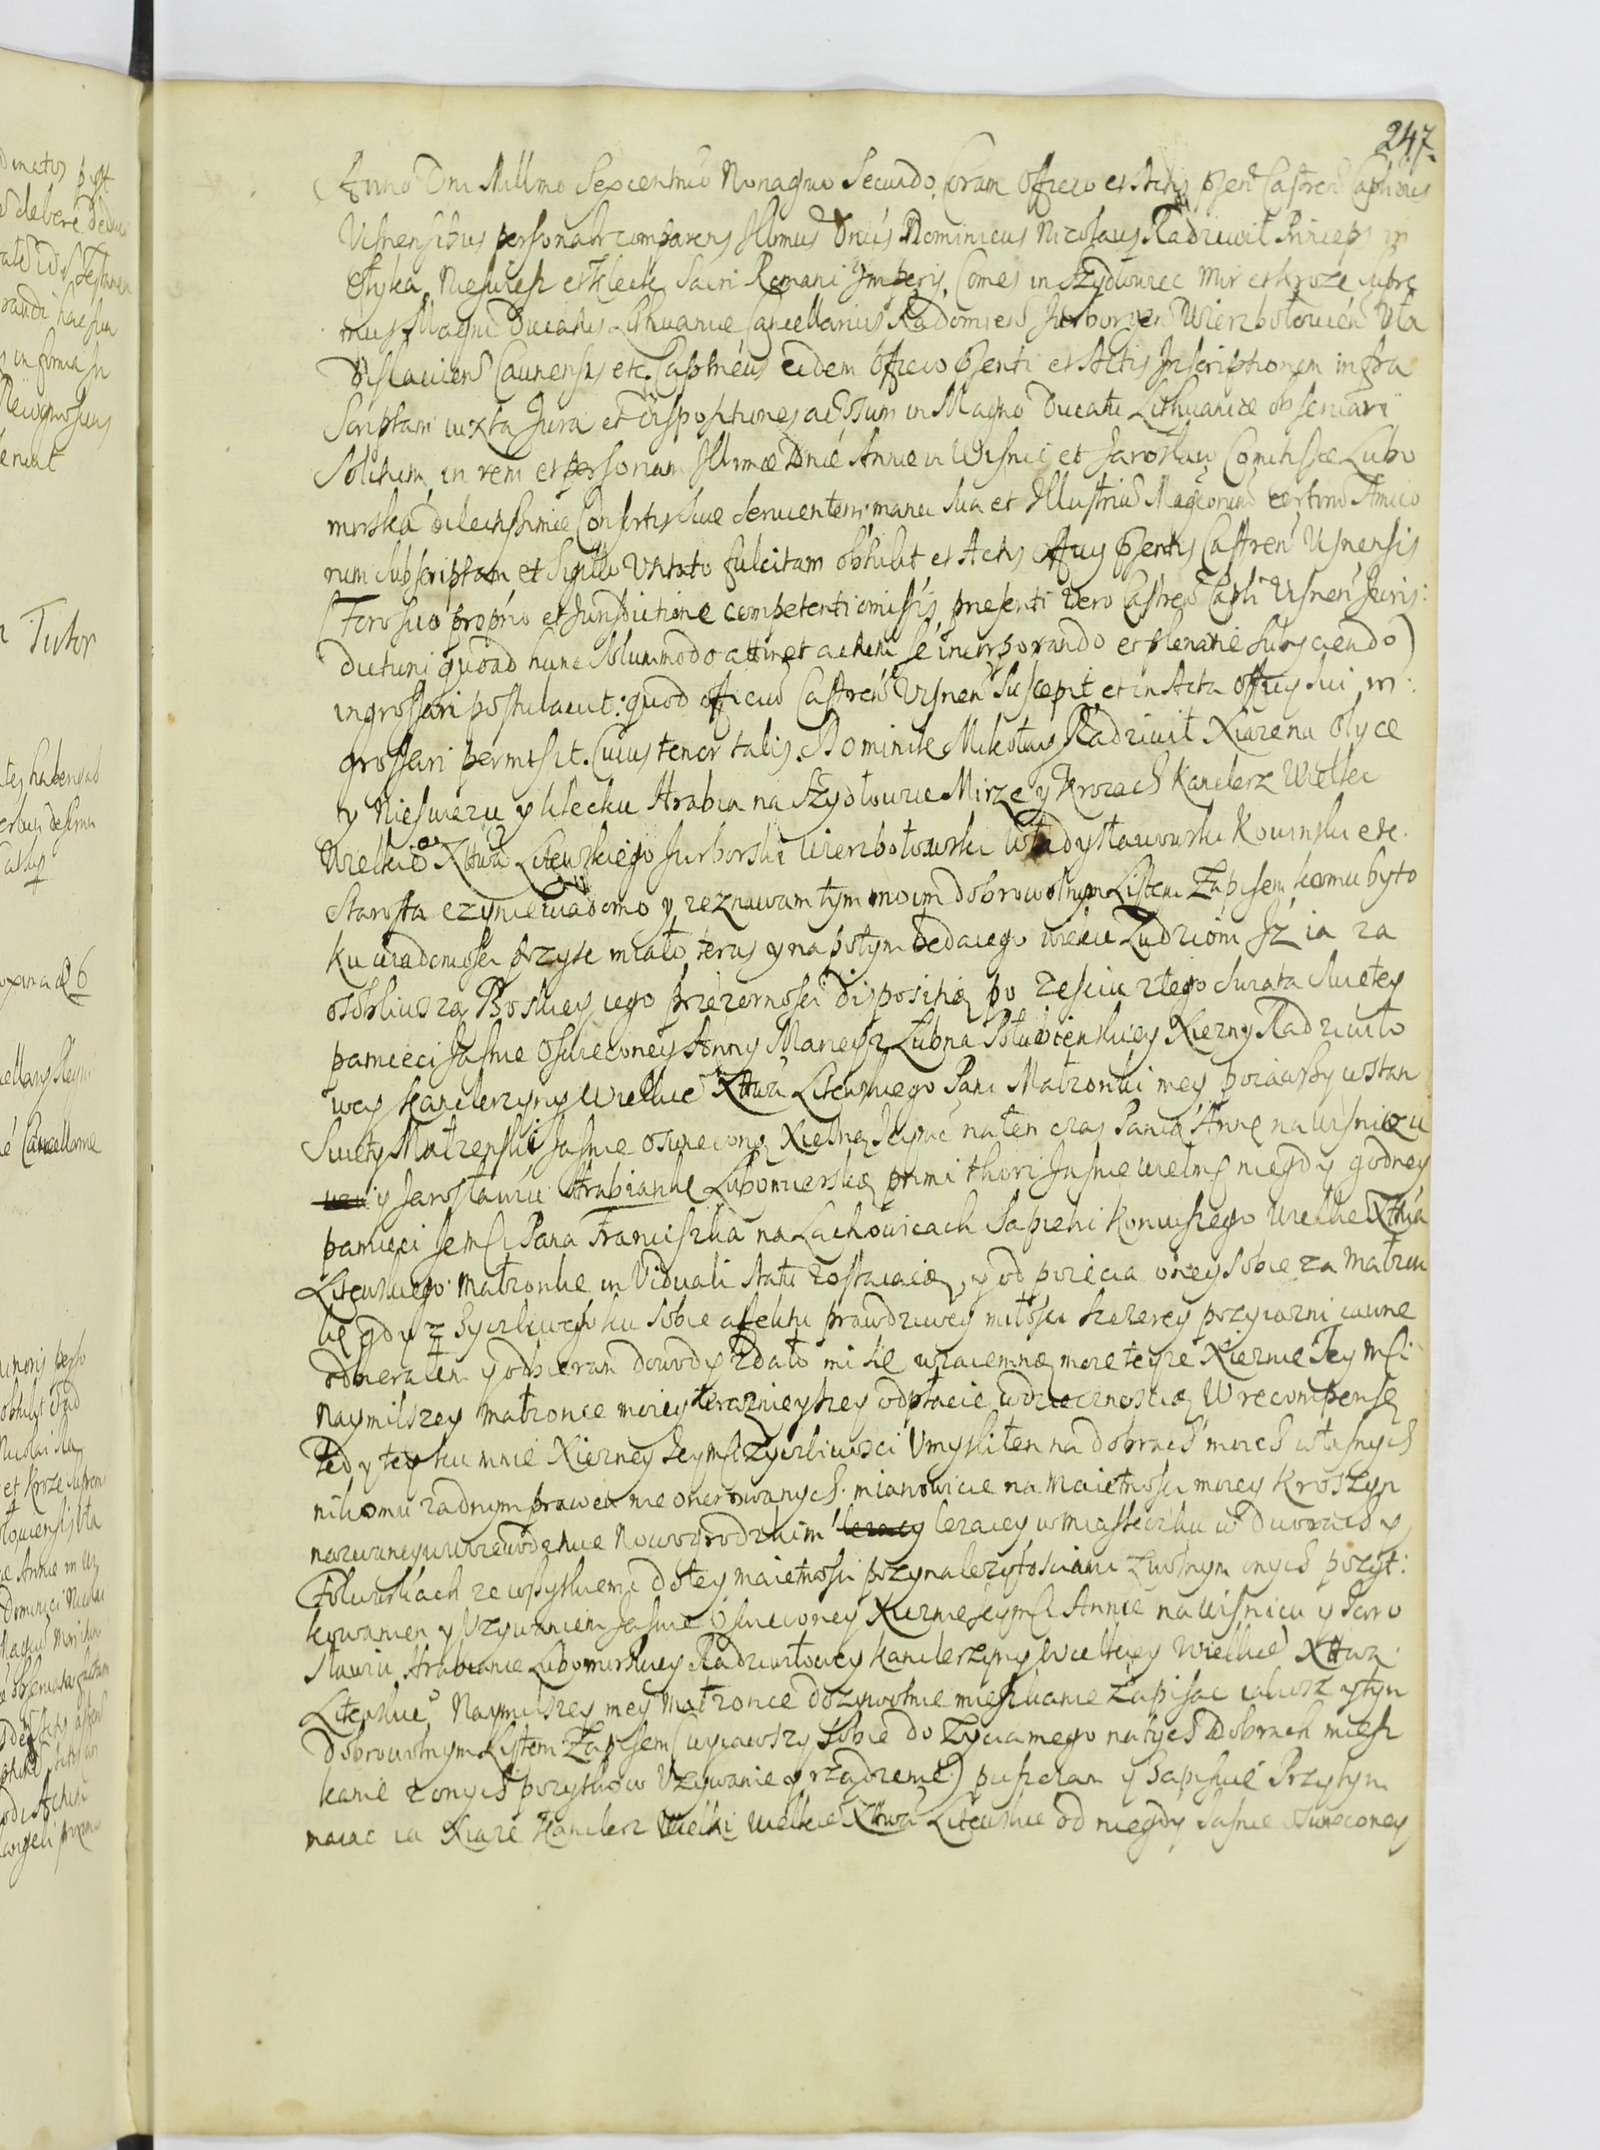 247
Anno Dni Millmo Sexcentmo Nonagmo Secundo. Coram Officio et Actis psen Castren Capthibus
Visnensibus personalr comparens Illmus Dnus Dominicus Nicolaus Radziwił Princeps in
Ołyka Nieświesz et Kleck Sacri Romani Imperij, Comes in Szydłowiec Mir et Kroze Supre
mus Magni Ducatus Lithuaniæ Cancellarius Radomien Jurborgen Wierzbołowien Vla
dislavien Caunensis etc. Captneus eidem officio psenti et Actis Inscriptionem infra
Scriptam iuxta Jura et dispositiones ac usum in Magno Ducatu Lithuaniæ observari
Solitum in rem et personam Illmæ Dnæ Annæ in Wisnic et Jarosław Comitissæ Lubo
mirska dilectissimæ Consortis suæ servientem manu sua et Illustrium Magcorum certorum Amico
rum subscriptam et Sigillo fulcitam obtulit et Actis Officij psentis Castren Visnensis
(Foro suo proprio et Jurisdictione competenti omissis, presenti vero Castren Capli Visnen Juris:
dictioni quoad hunc solummodo attinet actum se incorporando et plenarie subijciendo)
ingrossari postulavit: quod officium Castren Visnen suscepit et in Acta officij sui in:
grossari permisit. Cuius tenor talis. Dominik Mikołay Radziwił Xiąze na Ołyce
y Nieswizu y Klecku Hrabia na Szydłowcu Mirze y Krozach Kanclerz Wielki
Wielkiego Xttwa Litewskiego Jurborski Wierzbołowski Władysławowski Kowinski etc.
Starosta czynie wiadomo y zeznawam tym moim dobrowolnym Listem Zapisem komu by to
ku wiadomosci przyść miało, teraz y na potym będącego wieku Ludziom Iz ia za
osobliwszą Boskiey iego przezornosci dispositią po zesciu z tego swiata swietey
pamieci Jasnie Oswieconey Anny Maryey z Lubna Xiezny Radziwiło
wey Kanclerzyny Wielkie Xttwa Litewskiego Pani Małzonki mey poiąwszy w stan
Swiety Małzenski Jasnie oswieconą Xiezną Jeymc na ten czas Panią Annę na Wisniczu
y Jarosławiu Hrabiankę Lubomierską primi thori Jasnie wielmo niegdy godney
pamięci Jemsci Pana Franciszka na Lachowicach Sapiehi Koniuszego Wielkie Xttwa
Litewskiego Małzonkę in Viduali statu zostaiącą, y od poięcia oney sobie za Małzon
kę gdy z zyczliwego ku sobie afektu prawdziwey miłosci szczerey przyiazni iawne
odbierałem y odbieram dowody Zdało mi się wzaiemną moię teyze Xieznie Jey Msci
Naymilszey małzonce moiey teraznieyszey odpłacic wdzięcznoscią W recompensę
tedy tey ku mnie Xiezney Jeymsci zyczliwosci Umysliłem na dobrach moich własnych
nikomu zadnym prawem nie onerowanych. mianowicie na maietnosci moiey Kroszyn
nazwaney w Woiewodztwie Nowogrodzkim lezącey w miasteczku w Dworach y
Folwarkach ze wszytkiemi do tey maietnosci przynalezytosciami z wolnym onych pozyt:
kowaniem y Uzywaniem Jasnie Oswieconey Xieznie Jeymsci Annie na Wisniczu y Jaro
sławiu Hrabiance Lubomirskiey Radziwiłowey Kanclerzyny Wielkiey Wielkie Xttwa
Litewskie Naymilszey mey Małzonce dozywotnie mieszkanie Zapisac iakosz y tym
dobrowolnym Listem Zapisem (wyiąwszy sobie do Zycia mego na tych Dobrach miesz
kanie z onych pozytkow Uzywanie y rządzenie) puszczam y Zapisuię Przytym
maiąc ia Xiąze Kanclerz Wielki Wielkie Xttwa Litewskie od niegdy Jasnie Oswieconey